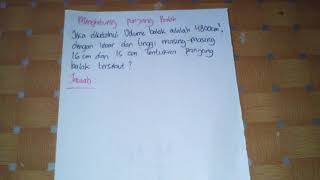 Menghitung panjang Balok
Jika diketahui Volume balok adalah 4800cm³,
dengan lebar dan tinggi masing-masing
16 cm dan 15 cm Tentukan panjang
balok tersebut?
Jawab